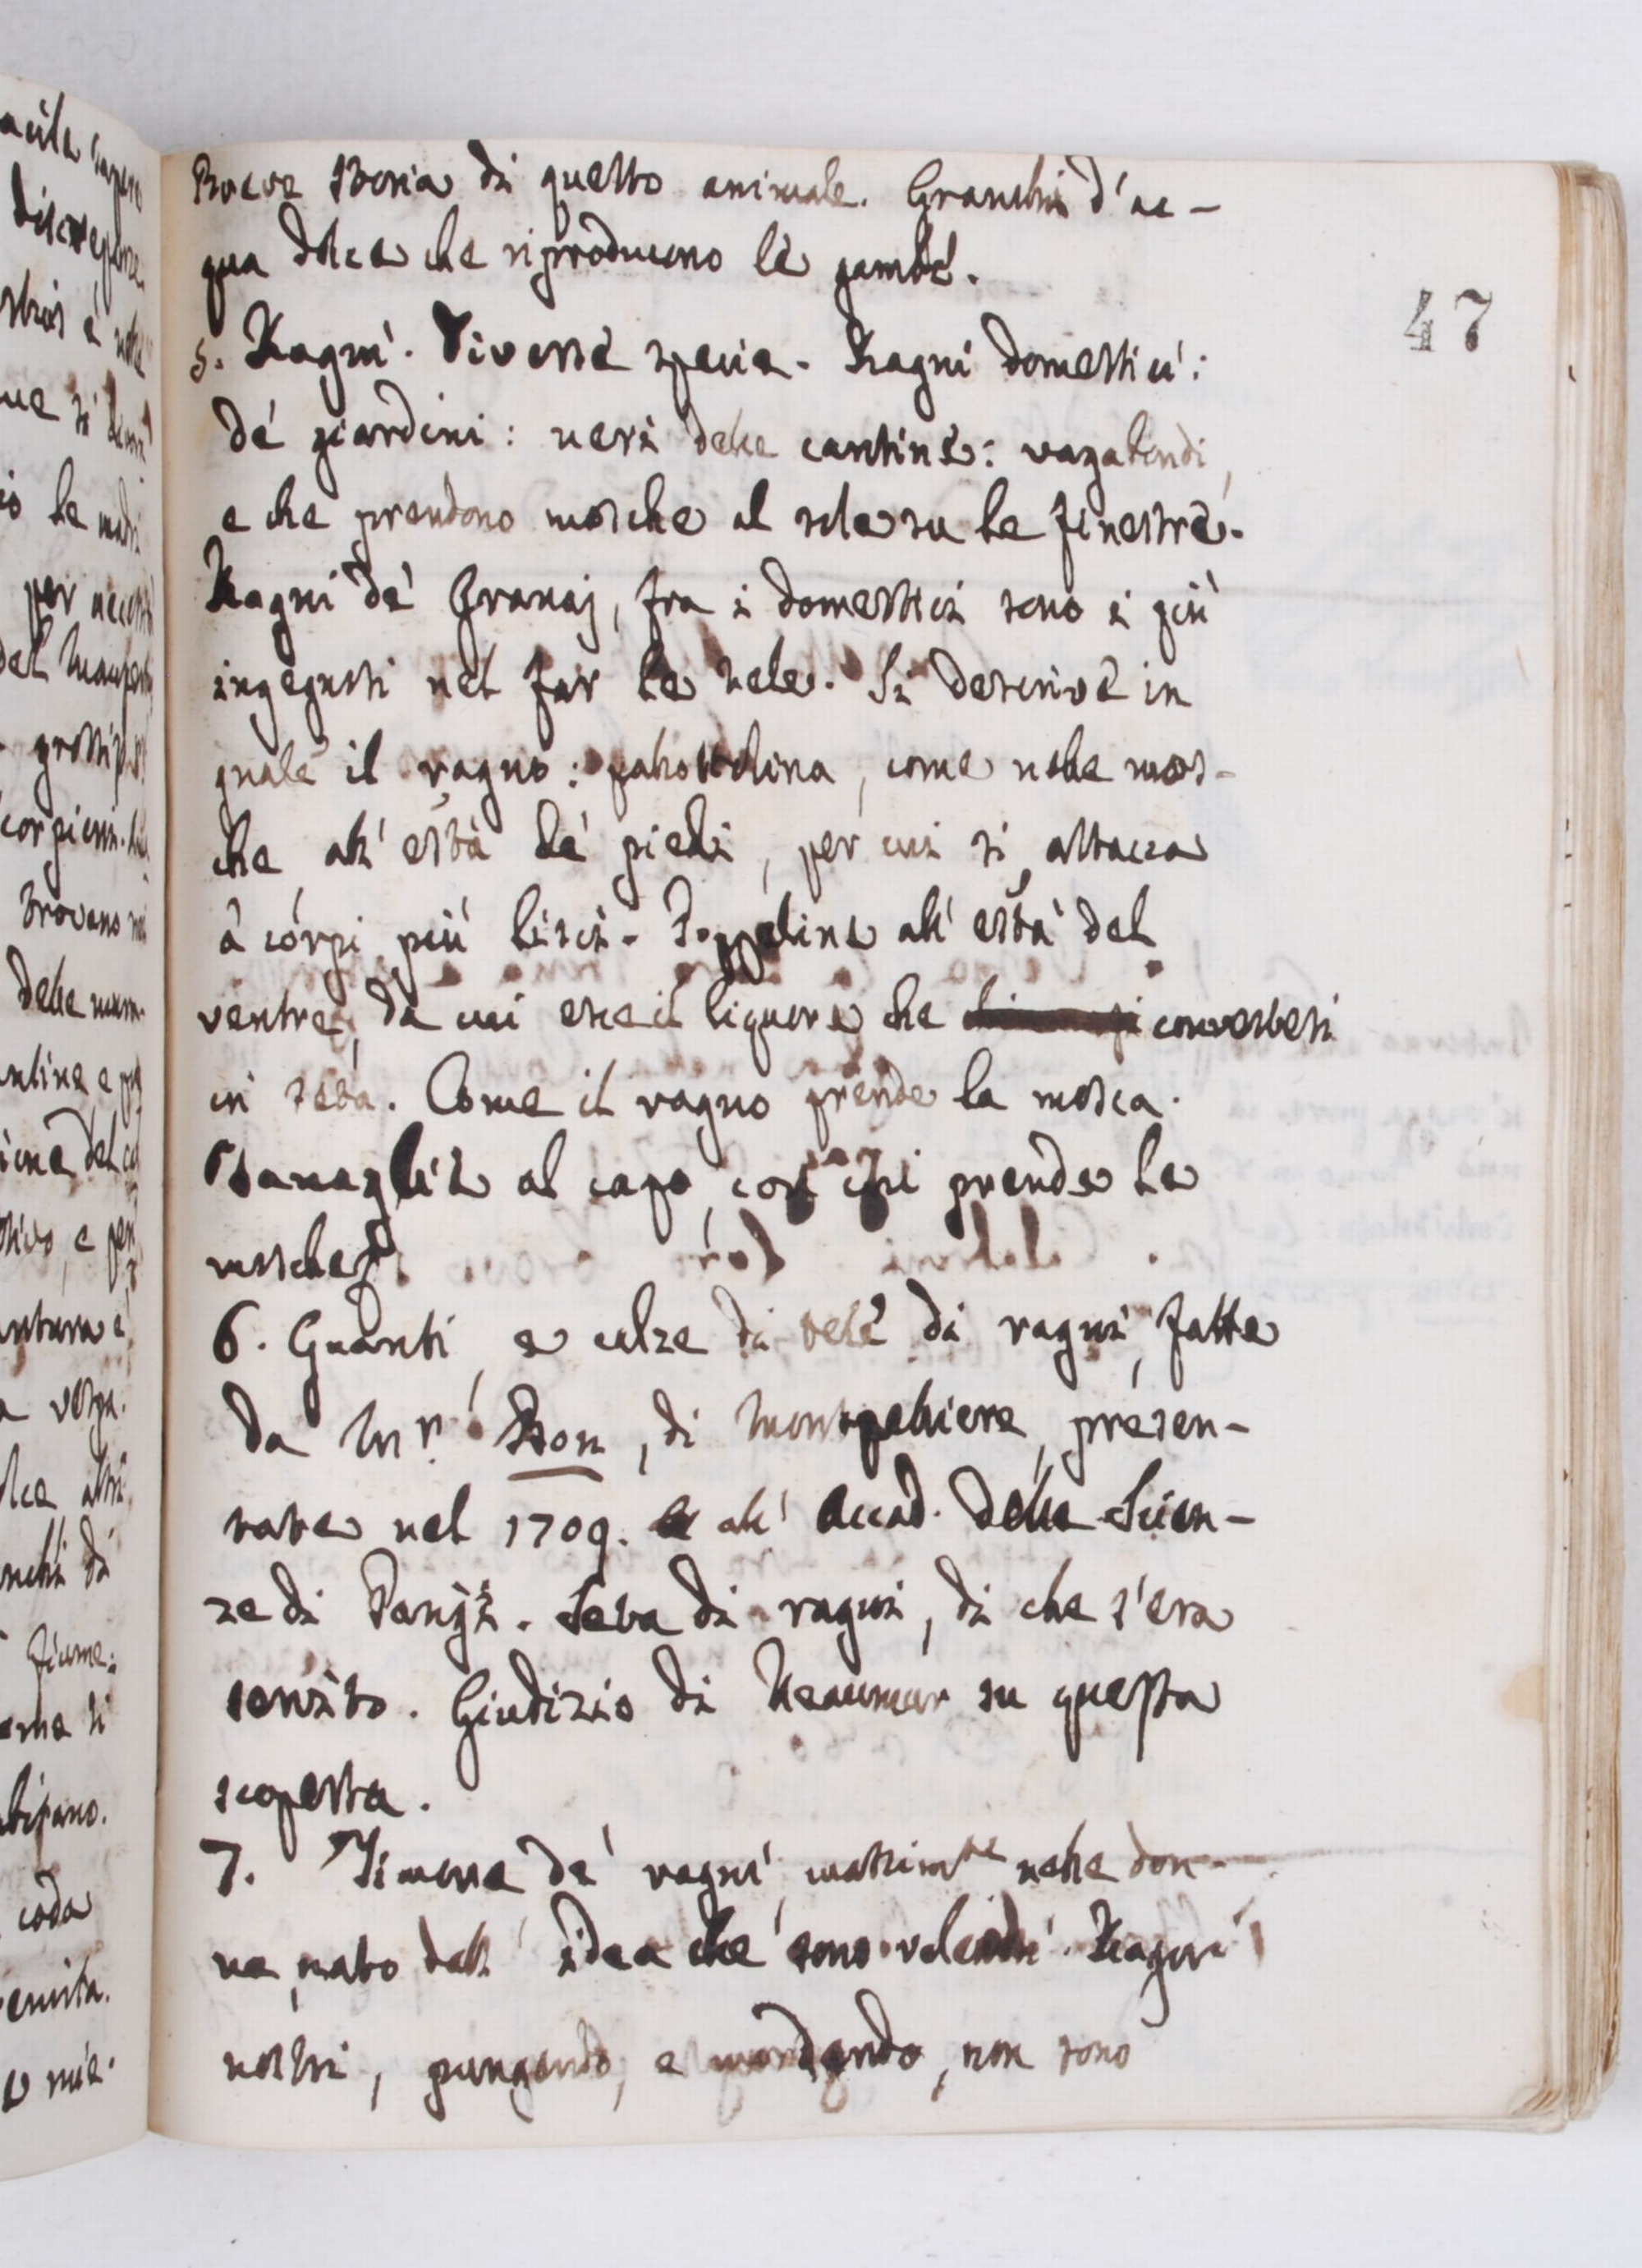 Breve storia di questo animale. Granchi d'ac-
qua dolce che riproducono le gambe.
47
5. Ragni. Diverse specie. Ragni domestici:
de' giardini: neri delle cantine: vagabondi,
e che prendono mosche al sole su le finestre.
Ragni de' Granaj, fra i domestici sono i più
ingegnosi nel far le tele. Si descrive in
gnale il ragno: pallottolina, come nelle mos-
che all' està de' piedi, per cui si attacca
a corpi più lisci. Poppeline all' està del
ventre, da cui esce il liquore che convertesi
in seta. Come il ragno prende la mosca.
Tanaglie al capo, con cui prende le
mosche.
6. Guanti, e calze di tele di ragni, fatte
da Mr. Bon, di Montpelliere, presen-
tate nel 1709. all' Accad. delle Scien-
ze di Parigi. Seta di ragni, di che s'era
servito. Giudizio di Reaumur su questa
scoperta.
7. Timore de' ragni, massimte nelle don-
ne, nato dall' idea che sono velenosi. Ragni
nostri, pungendo, e mordendo, non sono